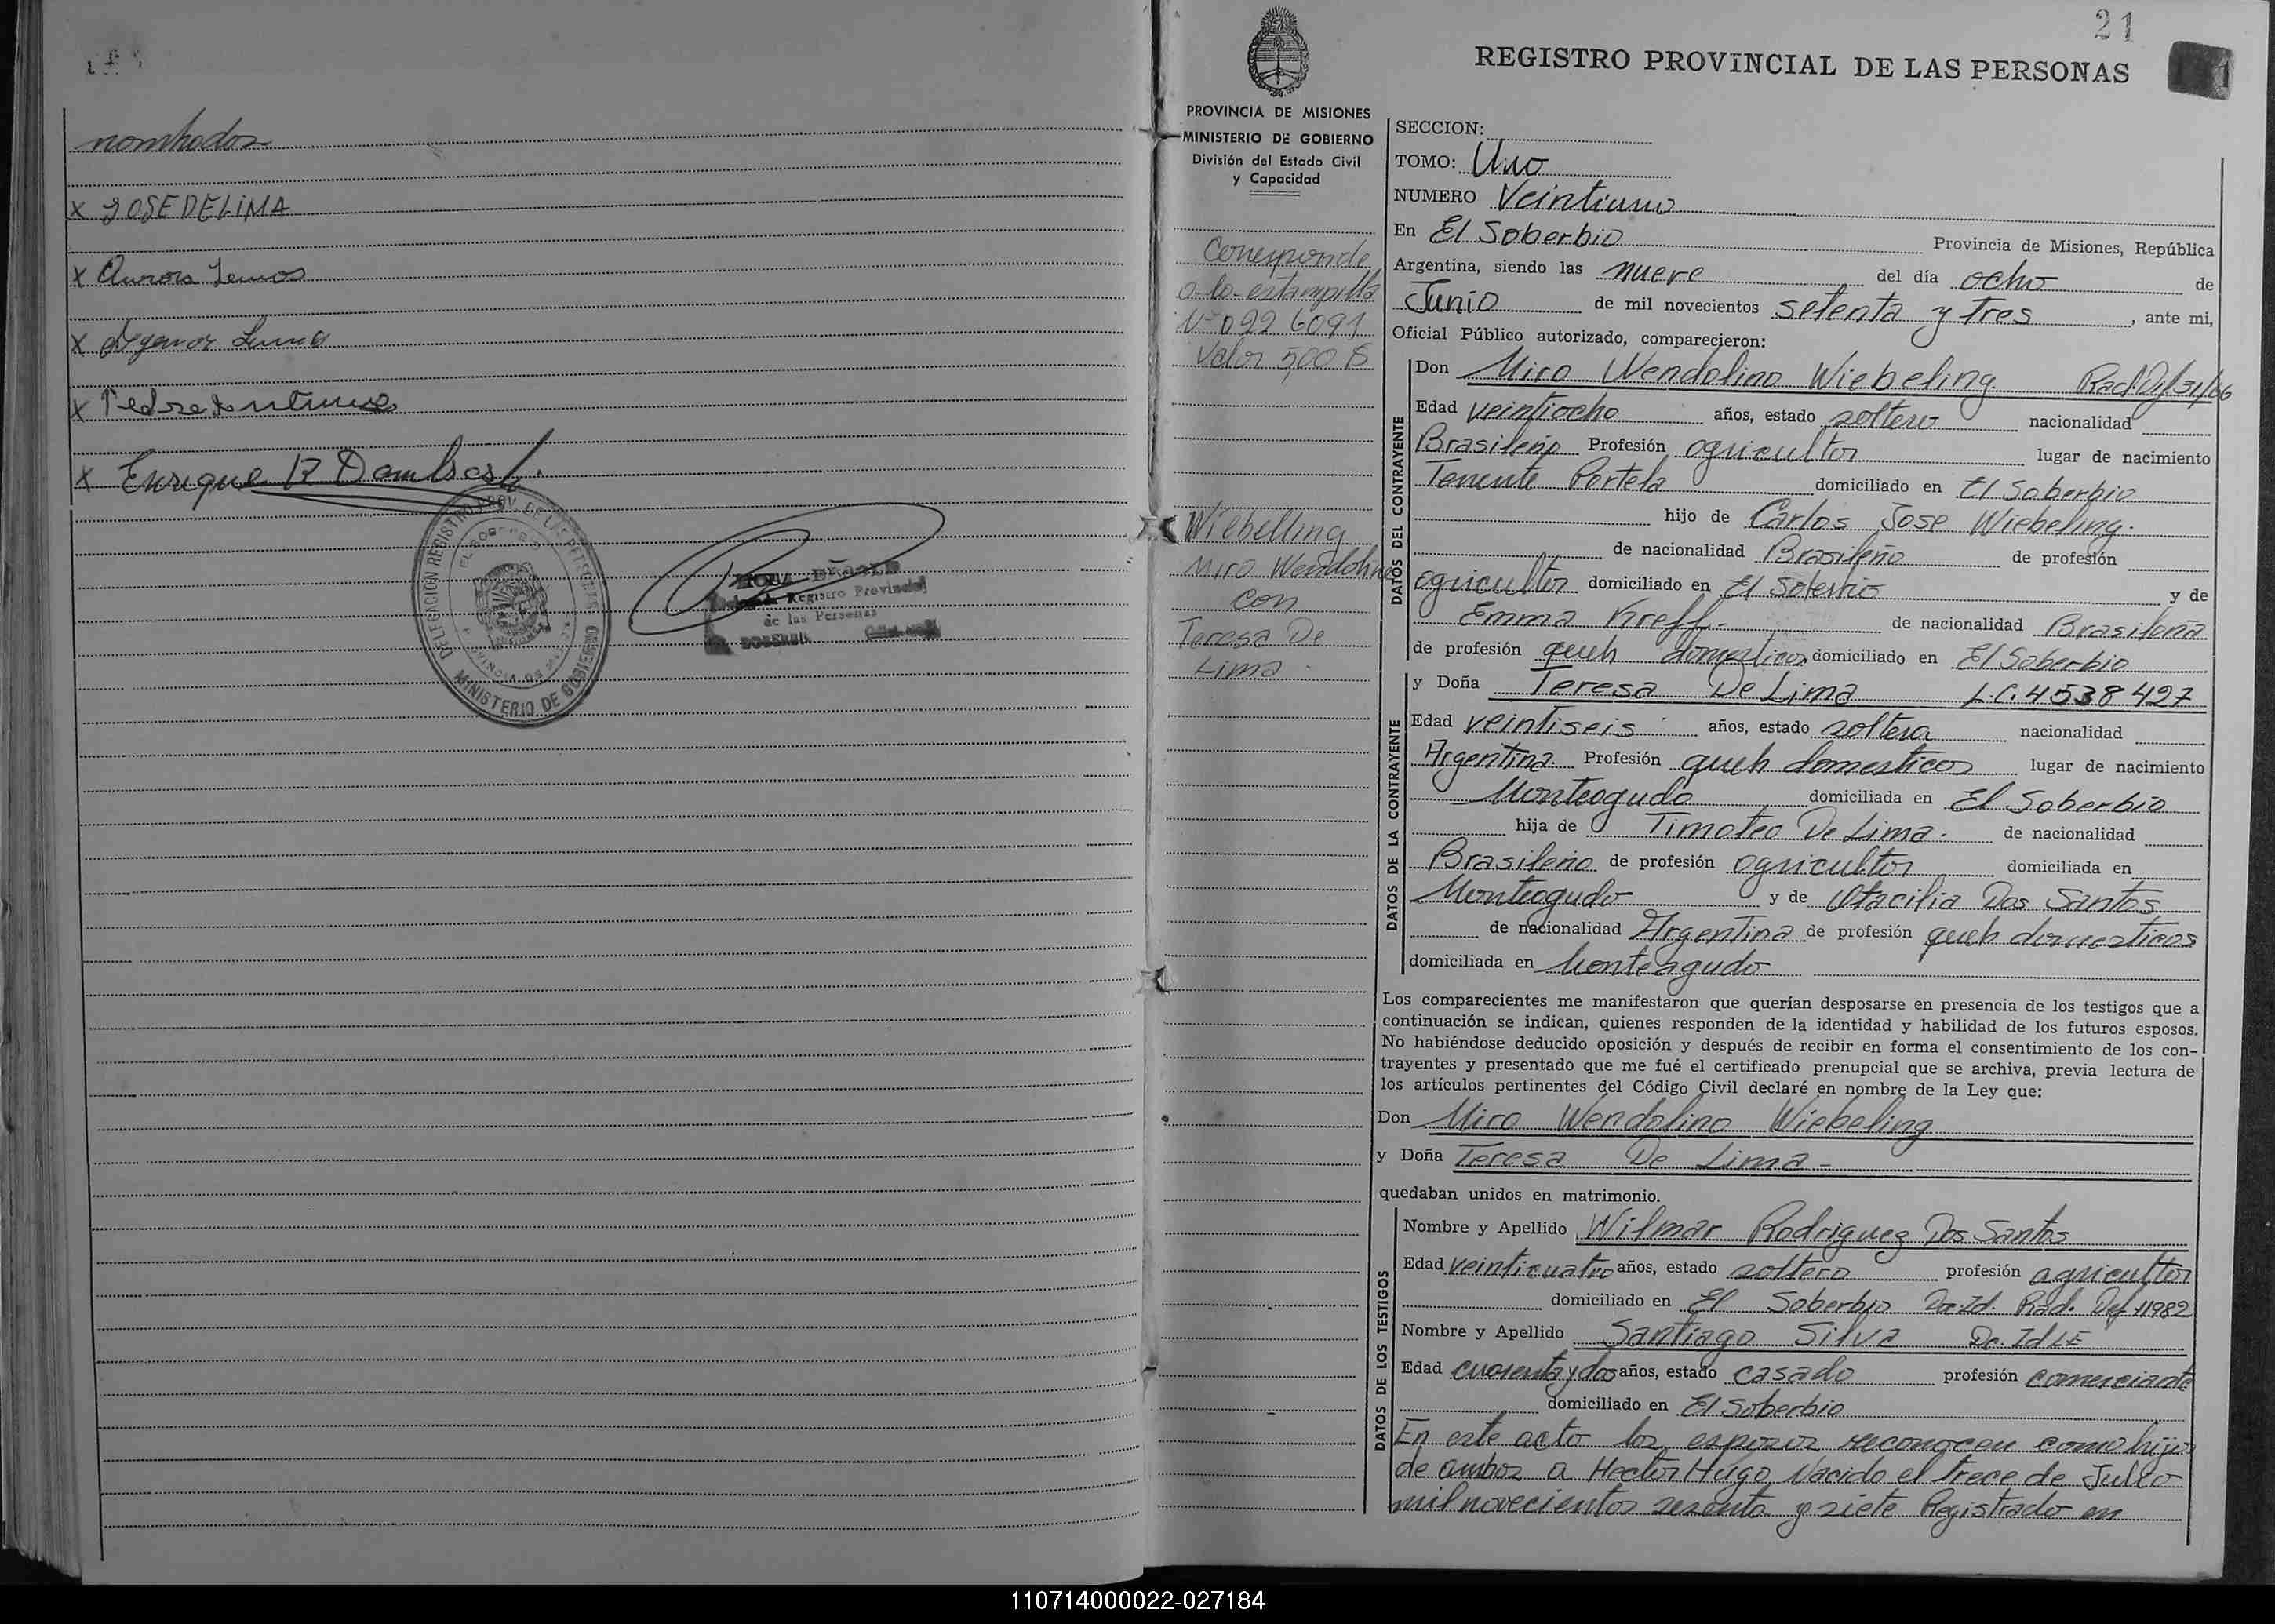 nombrados
x JOSE DE LIMA
x Aurora Lemos
x
x Pedro
x Enrique R
DELEGACION REGISTRO PROV. DE LAS PERSONAS
EL SOBERBIO
PROVINCIA DE MISIONES
MINISTERIO DE GOBIERNO
Registro Provincial
de las Personas
SOBERBIO
21
REGISTRO PROVINCIAL DE LAS PERSONAS
PROVINCIA DE MISIONES
MINISTERIO DE GOBIERNO
División del Estado Civil
y Capacidad
Corresponde
a la estampilla
Nº 022 6091
Valor 5,00 $
Wiebelling
Miro Wendolino
con
Teresa De
Lima
SECCION:
TOMO: Uno
NUMERO Veintiuno
En El Soberbio Provincia de Misiones, República
Argentina, siendo las nueve del día ocho de
Junio de mil novecientos setenta y tres, ante mi,
Oficial Público autorizado, comparecieron:
DATOS DEL CONTRAYENTE
Don Miro Wendolino Wiebeling
Edad veintiocho años, estado soltero nacionalidad
Brasileño Profesión agricultor lugar de nacimiento
Tenente Portela domiciliado en El Soberbio
hijo de Carlos Jose Wiebeling.
de nacionalidad Brasileño de profesión
agricultor domiciliado en El Soberbio y de
Emma Kreff- de nacionalidad Brasileña
de profesión queh domesticos domiciliado en El Soberbio
DATOS DE LA CONTRAYENTE
y Doña Teresa De Lima L.C. 4538427
Edad veintiseis años, estado soltera nacionalidad
Argentina Profesión queh domesticos lugar de nacimiento
Monteagudo domiciliada en El Soberbio
hija de Timoteo De Lima. de nacionalidad
Brasileño de profesión agricultor domiciliada en
Monteagudo y de Otacilia Dos Santos
de nacionalidad Argentina de profesión queh domesticos
domiciliada en Monteagudo
Los comparecientes me manifestaron que querían desposarse en presencia de los testigos que a
continuación se indican, quienes responden de la identidad y habilidad de los futuros esposos.
No habiéndose deducido oposición y después de recibir en forma el consentimiento de los con-
trayentes y presentado que me fué el certificado prenupcial que se archiva, previa lectura de
los artículos pertinentes del Código Civil declaré en nombre de la Ley que:
Don Miro Wendolino Wiebeling
y Doña Teresa De Lima -
quedaban unidos en matrimonio.
DATOS DE LOS TESTIGOS
Nombre y Apellido Wilmar Rodriguez Dos Santos
Edad veinticuatro años, estado soltero profesión agricultor
domiciliado en El Soberbio Doc. Id. Rad. Def 11982
Nombre y Apellido Santiago Silva Dc. Id LE
Edad cuarenta y dos años, estado casado profesión comerciante
domiciliado en El Soberbio
En este acto los esposos reconocen como hijo
de ambos a Hector Hugo Nacido el trece de Julio
mil novecientos sesenta y siete Registrado en
110714000022-027184